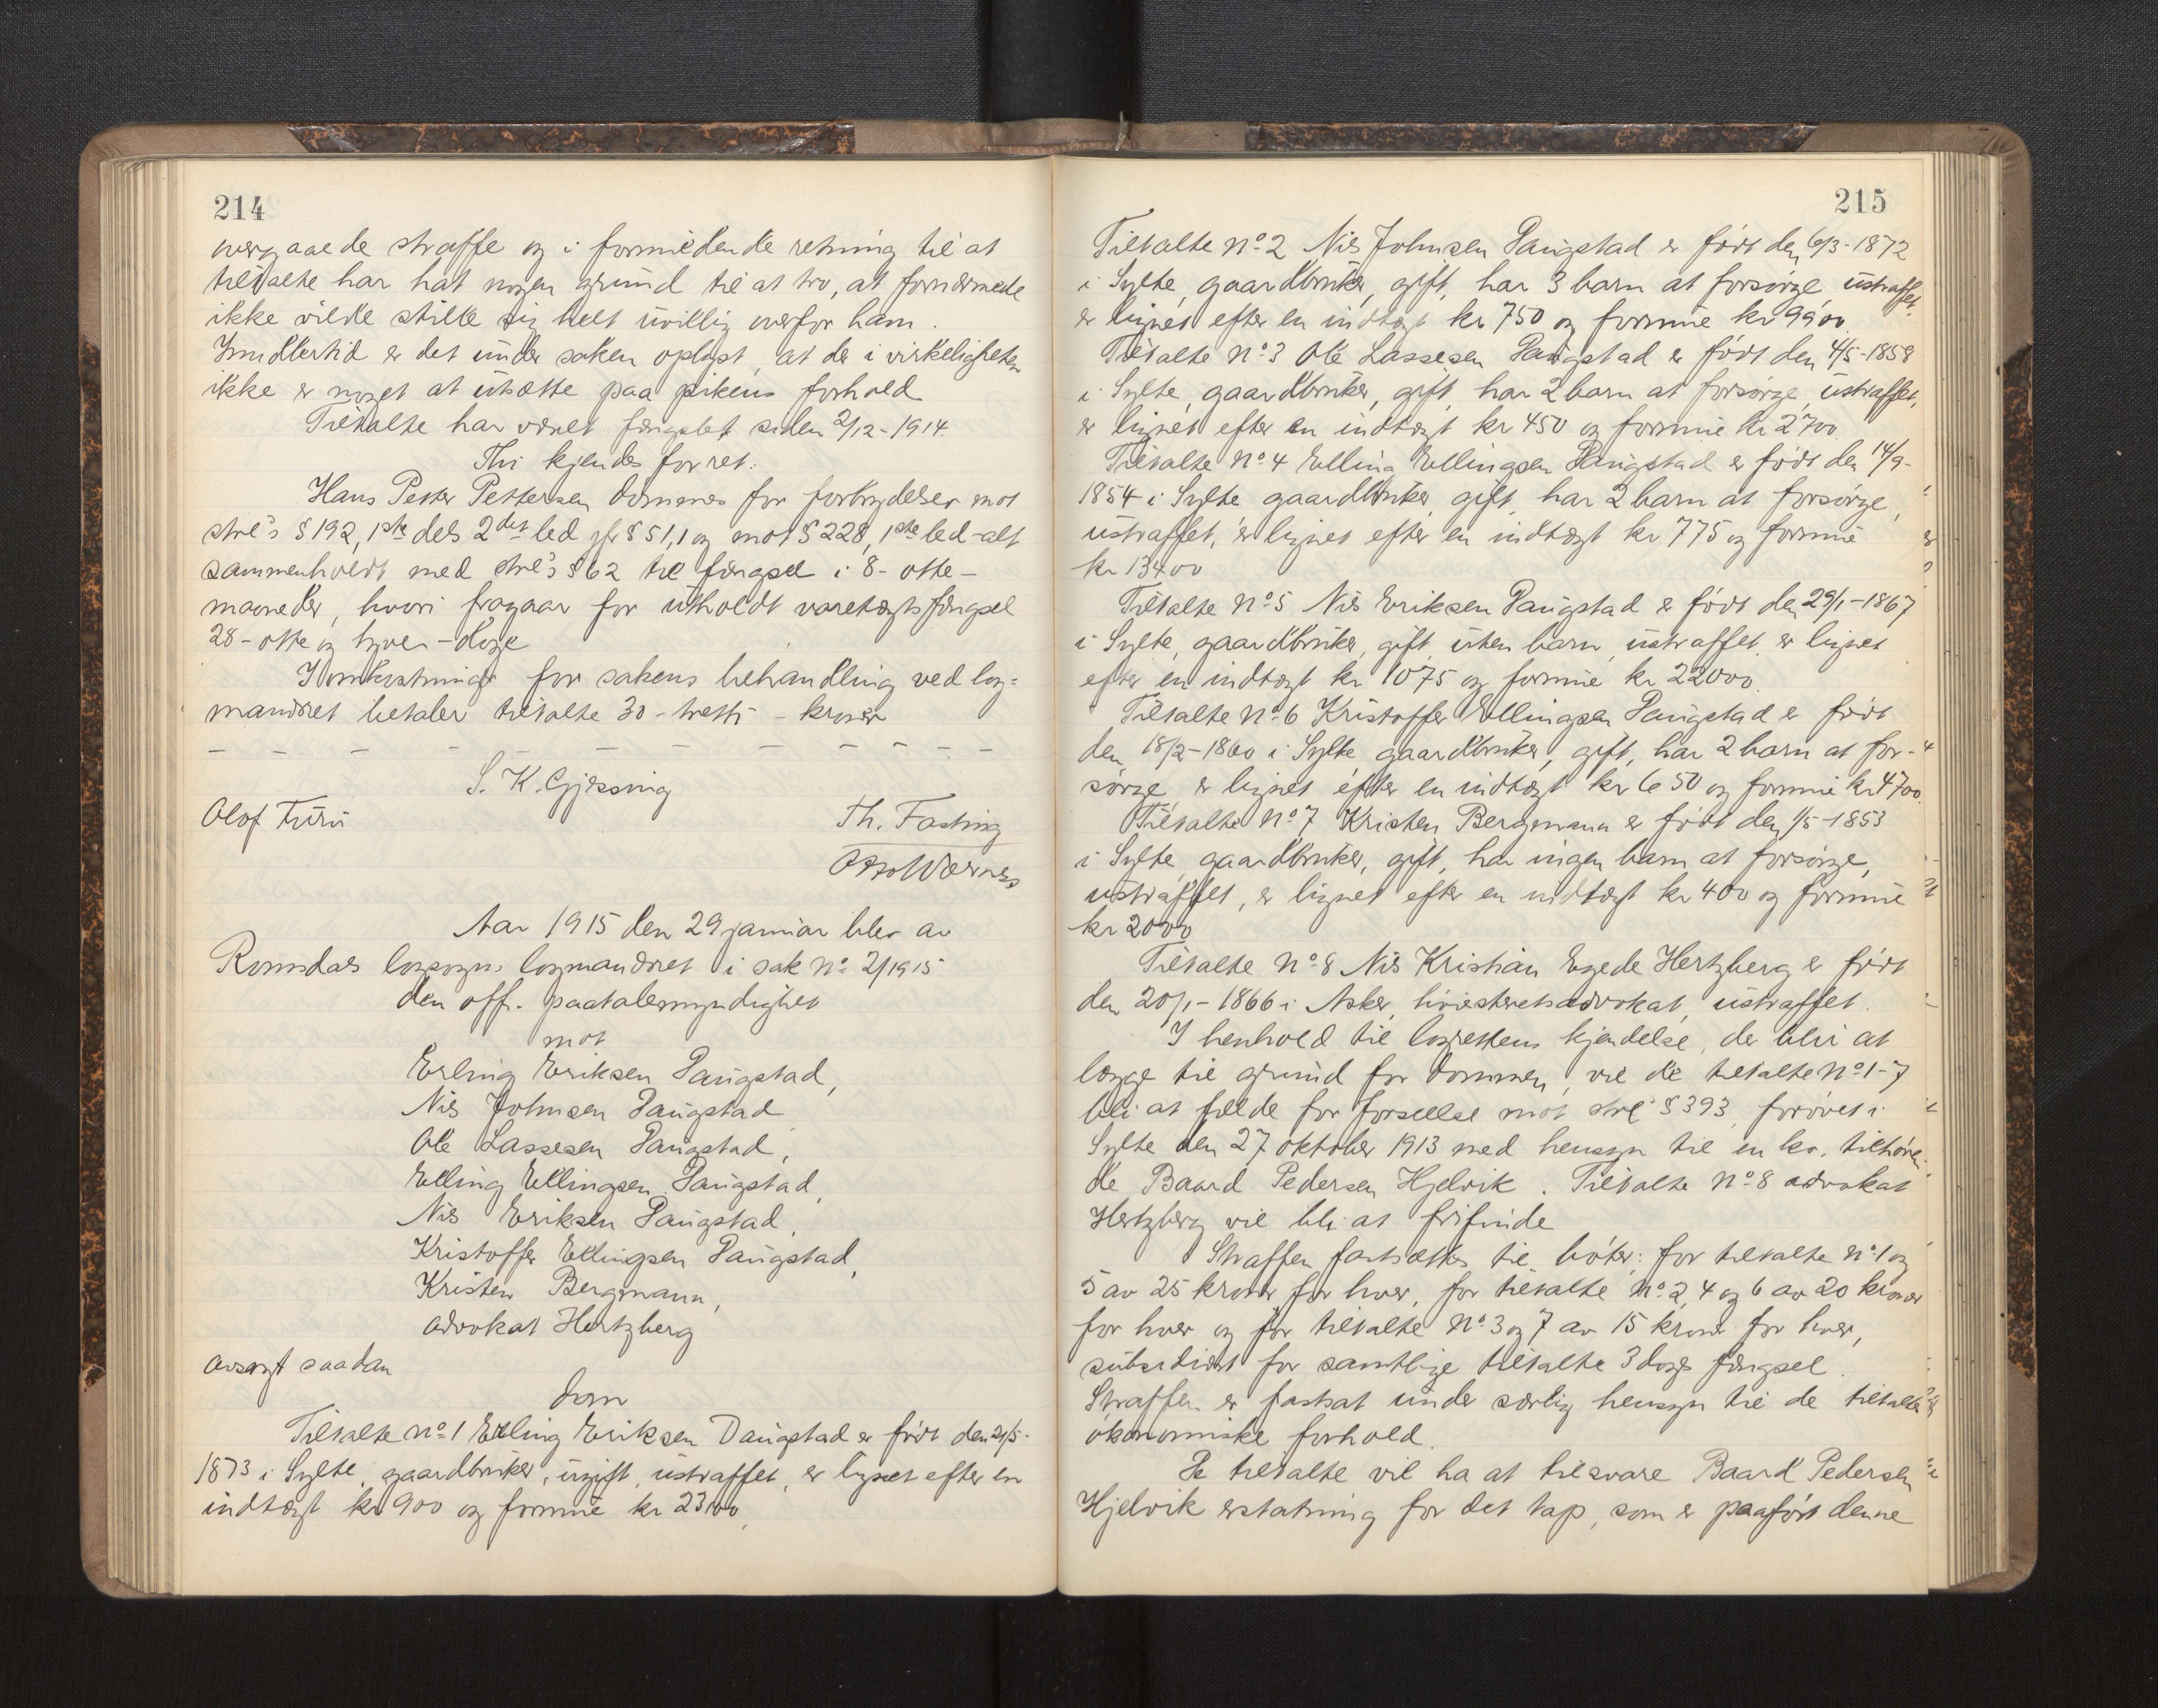 214
overgaaede straffe og i formildende retning til at
tiltalte har hat nogen grund til at tro, at fornærmede
ikke vilde stille sig helt uvillig overfor ham.
Imidlertid er det under saken oplyst, at der i virkeligheten
ikke er noget at utsætte paa pikens forhold
Tiltalte har været fængslet siden 2/12-1914.
Thi kjendes for ret:
Hans Peter Pettersen dømmes for forbrydelser mot
strl's § 192, 1ste dels 2det led jfr § 51,1 og mot § 228, 1ste led – alt
sammenholdt med strl's § 62 til fængsel i 8 - otte -
maaneder, hvori fragaar for utholdt varetægtsfængsel
28 - otte og tyve - dage
I omkostninger for sakens behandling ved lag=
mandsret betaler tiltalte 30 - tretti - kroner
S. K. Gjessing
Olof Turu
Th. Fasting
Otto Wærness
Aar 1915 den 29 januar blev av
Romsdals lagsogns lagmandsret i sak No 2/1915
den off. paatalemyndighet
mot
Erling Eriksen Daugstad,
Nils Johnsen Daugstad
Ole Lassesen Daugstad,
Elling Ellingsen Daugstad,
Nils Eriksen Daugstad,
Kristoffer Ellingsen Daugstad,
Kristen Bergmann,
advokat Hertzberg
avsagt saadan
dom
Tiltalte No 1 Erling Eriksen Daugstad er født den 21/5-
1873 i Sylte, gaardbruker, ugift, ustraffet, er lignet efter en
indtægt kr 900 og formue kr 23100,
215
Tiltalte No 2 Nils Johnsen Daugstad er født den 6/3-1872
i Sylte, gaardbruker, gift, har 3 barn at forsørge, ustraffet,
er lignet efter en indtægt kr 750 og formue kr 9900.
Tiltalte No 3 Ole Lassesen Daugstad er født den 4/5-1858
i Sylte, gaardbruker, gift, har 2 barn at forsørge, ustraffet,
er lignet efter en indtægt kr 450 og formue kr 2700.
Tiltalte No 4 Elling Ellingsen Daugstad er født den 14/9-
1854 i Sylte gaardbruker, gift, har 2 barn at forsørge,
ustraffet, er lignet efter en indtægt kr 775 og formue
kr 13400
Tiltalte No 5 Nils Eriksen Daugstad er født den 29/1-1867
i Sylte, gaardbruker, gift, uten barn, ustraffet, er lignet
efter en indtægt kr 1075 og formue kr 22000.
Tiltalte No 6 Kristoffer Ellingsen Daugstad er født
den 18/2-1860 i Sylte, gaardbruker, gift, har 2 barn at for-
sørge, er lignet efter en indtægt kr 650 og formue kr 4700.
Tiltalte No 7 Kristen Bergmann er født den 1/5-1853
i Sylte, gaardbruker, gift, har ingen barn at forsørge,
ustraffet, er lignet efter en indtægt kr 400 og formue
kr 2000
Tiltalte No 8 Nils Kristian Egede Hertzberg er født
den 20/1-1866 i Asker, høiesteretsadvokat, ustraffet.
I henhold til lagrettens kjendelse, der blir at
lægge til grund for dommen, vil de tiltalte No 1-7
bli at fælde for forseelse mot strl § 393, forøvet i
Sylte den 27 oktober 1913 med hensyn til en ko, tilhøren-
de Baard Pedersen Hjelvik. Tiltalte No 8 advokat
Hertzberg vil bli at frifinde
Straffen fastsættes til bøter: for tiltalte No 1 og
5 av 25 kroner for hver, for tiltalte No 2, 4 og 6 av 20 kroner
for hver og for tiltalte No 3 og 7 av 15 kroner for hver,
subsidiært for samtlige tiltalte 3 dages fængsel.
Straffen er fastsat under særlig hensyn til de tiltaltes
økonomiske forhold.
De tiltalte vil ha at tilsvare Baard Pedersen
Hjelvik erstatning for det tap, som er paaført denne